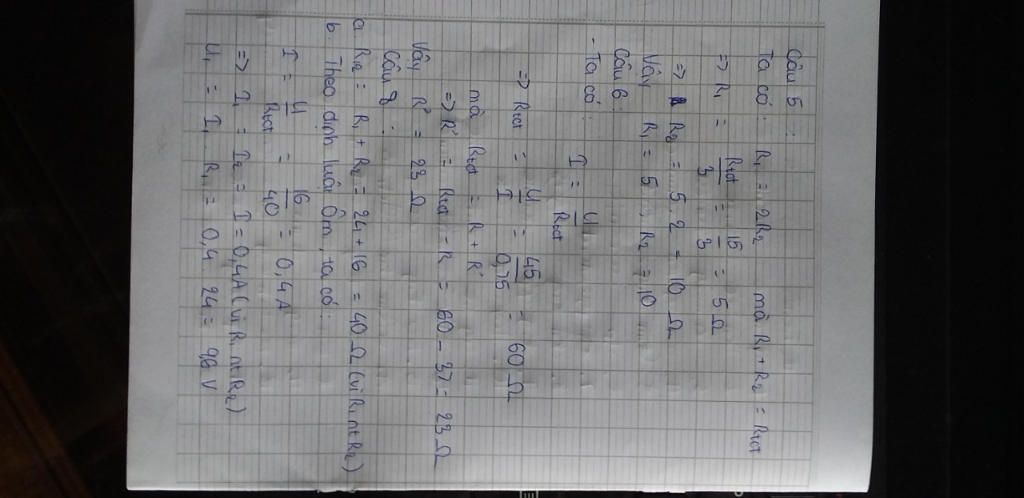 Câu 5 :
Ta có : R₁ = 2R₂ mà R₁ + R₂ = Rtđ
=> R₁ = Rtđ/3 = 15/3 = 5 Ω
=> R₂ = 5.2 = 10 Ω
Vậy R₁ = 5, R₂ = 10
Câu 6 :
- Ta có : I = U/Rtđ
=> Rtđ = U/I = 45/0,75 = 60 Ω
mà Rtđ = R + R'
=> R' = Rtđ - R = 60 - 37 = 23 Ω
Vậy R' = 23 Ω
Câu 8 :
a R₁₂ = R₁ + R₂ = 24 + 16 = 40 Ω (vì R₁ nt R₂)
b. Theo định luật Ôm, ta có :
I = U/Rtđ = 16/40 = 0,4A
=> I₁ = I₂ = I = 0,4A (vì R₁ nt R₂)
U₁ = I₁ . R₁ = 0,4 . 24 = 9,6 V